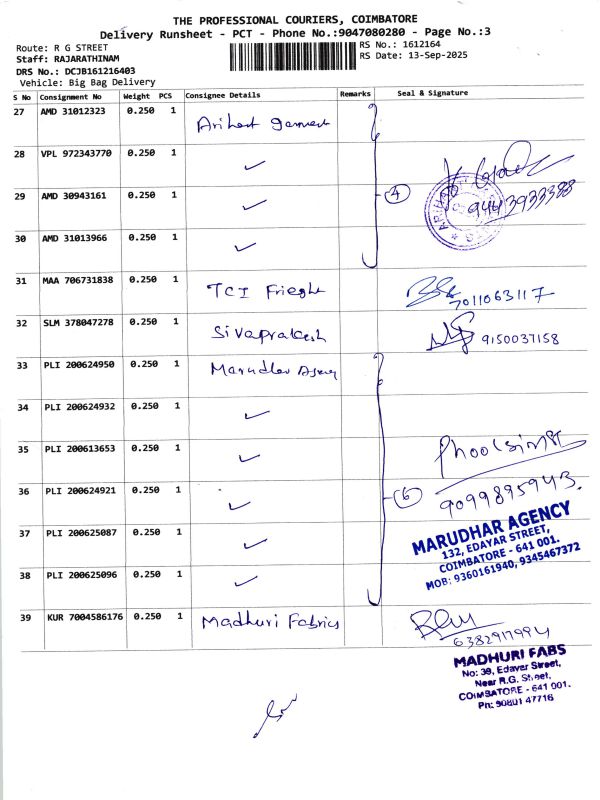 THE PROFESSIONAL COURIERS, COIMBATORE
Delivery Runsheet - PCT - Phone No.:9047080280 - Page No.:3
Route: R G STREET
RS No.: 1612164
Staff: RAJARATHINAM
RS Date: 13-Sep-2025
DRS No.: DCJB161216403
Vehicle: Big Bag Delivery
S No Consignment No Weight PCS Consignee Details Remarks Seal & Signature
27 AMD 31012323 0.250 1 Arihant garment
28 VPL 972343770 0.250 1 ✓
29 AMD 30943161 0.250 1 ✓ 4 9443933388
30 AMD 31013966 0.250 1 ✓
31 MAA 706731838 0.250 1 TCI Frieght 7011063117
32 SLM 378047278 0.250 1 Sivaprakash 9150037158
33 PLI 200624950 0.250 1 Marudhar Agency
34 PLI 200624932 0.250 1 ✓
35 PLI 200613653 0.250 1 ✓ Phoolsingh
36 PLI 200624921 0.250 1 ✓ 6 9099895943.
37 PLI 200625087 0.250 1 ✓
38 PLI 200625096 0.250 1 ✓
MARUDHAR AGENCY
132, EDAYAR STREET,
COIMBATORE - 641 001.
MOB: 9360161940, 9345467372
39 KUR 7004586176 0.250 1 Madhuri Fabrics
6382917994
MADHURI FABS
No: 39, Edayar Street,
Near R.G. Street,
COIMBATORE - 641 001.
Ph: 90801 47716